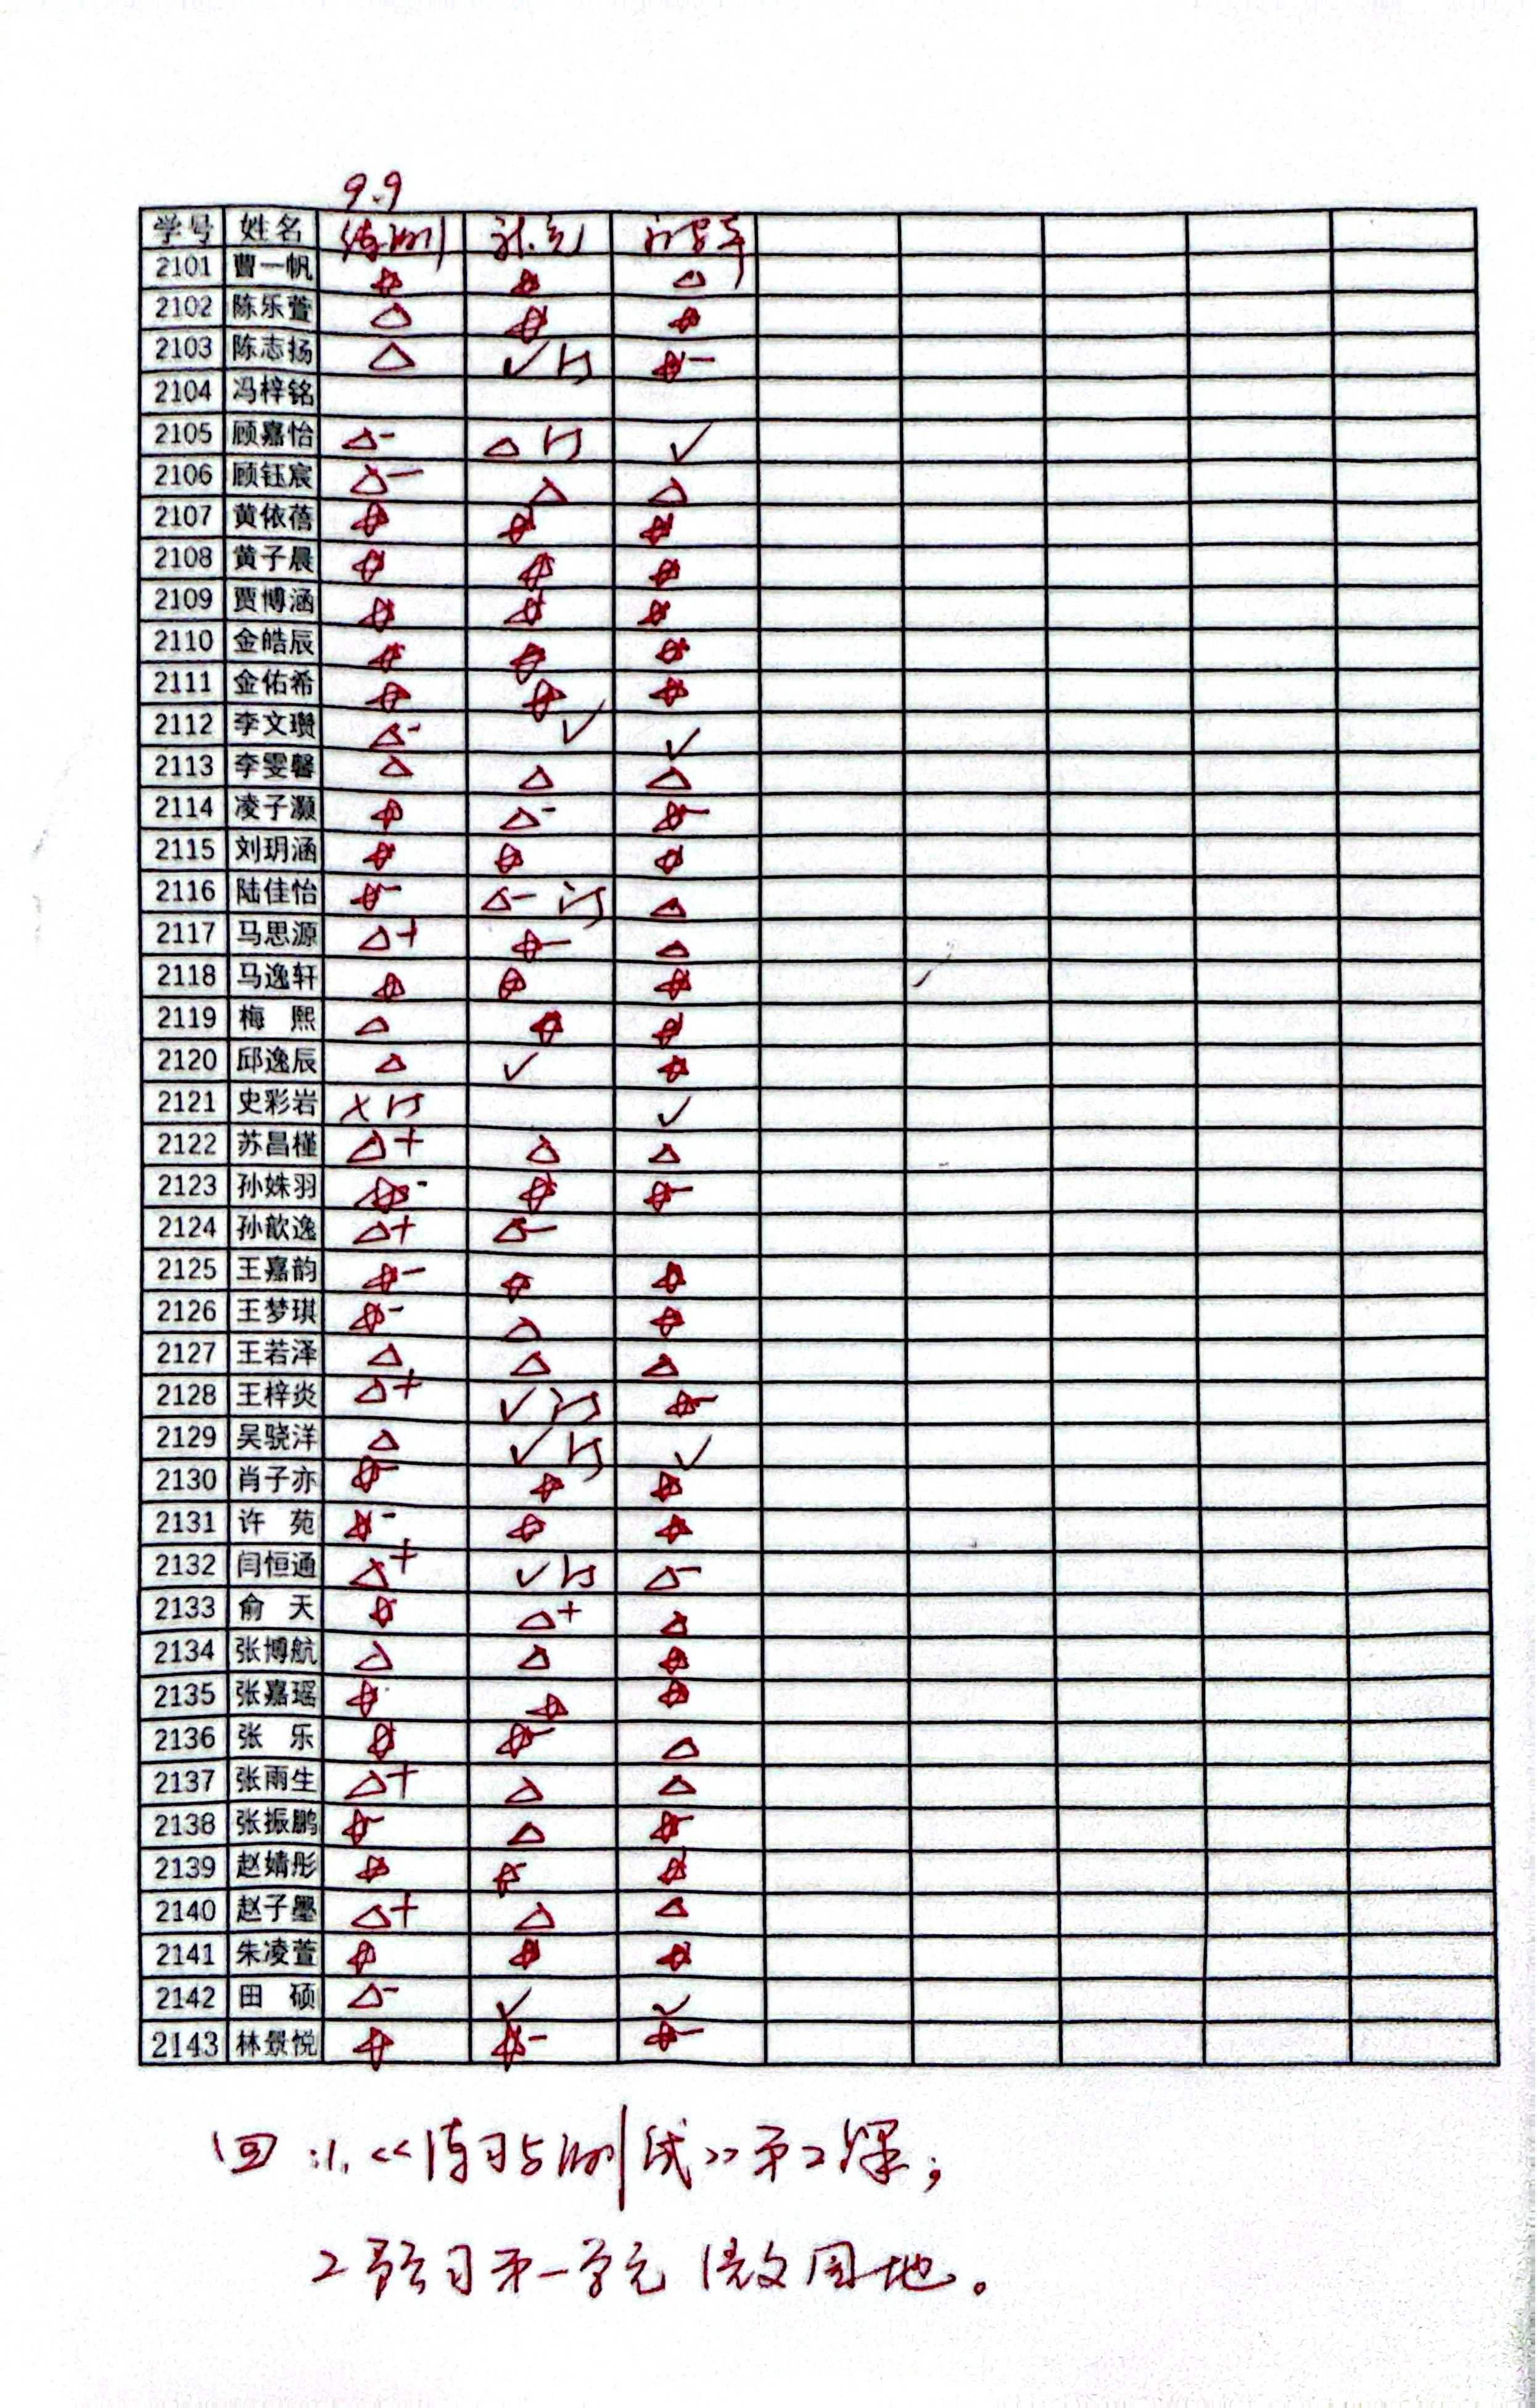 9.9
学号 姓名 练测 补充
2101 曹一帆 ☆ ☆ △
2102 陈乐萱 △ ☆ ☆
2103 陈志扬 △ ✓订 ☆-
2104 冯梓铭
2105 顾嘉怡 △- △订 ✓
2106 顾钰宸 △- △ △
2107 黄依蓓 ☆ ☆ ☆
2108 黄子晨 ☆ ☆ ☆
2109 贾博涵 ☆ ☆ ☆
2110 金皓辰 ☆ ☆ ☆
2111 金佑希 ☆ ☆ ☆
2112 李文瓒 △- ✓ ✓
2113 李雯馨 △ △ △
2114 凌子灏 ☆ △- ☆-
2115 刘玥涵 ☆ ☆ ☆
2116 陆佳怡 ☆- △-订 △
2117 马思源 △+ ☆- △
2118 马逸轩 ☆ ☆ ☆
2119 梅 熙 △ ☆ ☆
2120 邱逸辰 △ ✓ ☆
2121 史彩岩 ×订 ✓
2122 苏昌槿 △+ △ △
2123 孙姝羽 ☆- ☆ ☆-
2124 孙歆逸 △+ △-
2125 王嘉韵 ☆- ☆ ☆
2126 王梦琪 ☆- △ ☆
2127 王若泽 △ △ △
2128 王梓炎 △+ ✓订 ☆-
2129 吴骁洋 △ ✓订 ✓
2130 肖子亦 ☆- ☆ ☆
2131 许 苑 ☆- ☆ ☆
2132 闫恒通 △+ ✓订 △-
2133 俞 天 ☆ △+ △
2134 张博航 △ △ ☆
2135 张嘉瑶 ☆ ☆ ☆
2136 张 乐 ☆ ☆- △
2137 张雨生 △+ △ △
2138 张振鹏 ☆- △ ☆-
2139 赵婧彤 ☆ ☆- ☆
2140 赵子墨 △+ △ △
2141 朱凌萱 ☆ ☆ ☆
2142 田 硕 △- ✓ ✓
2143 林景悦 ☆ ☆- ☆-
回:1.《练习与测试》第2课;
2 预习第一单元 语文园地。